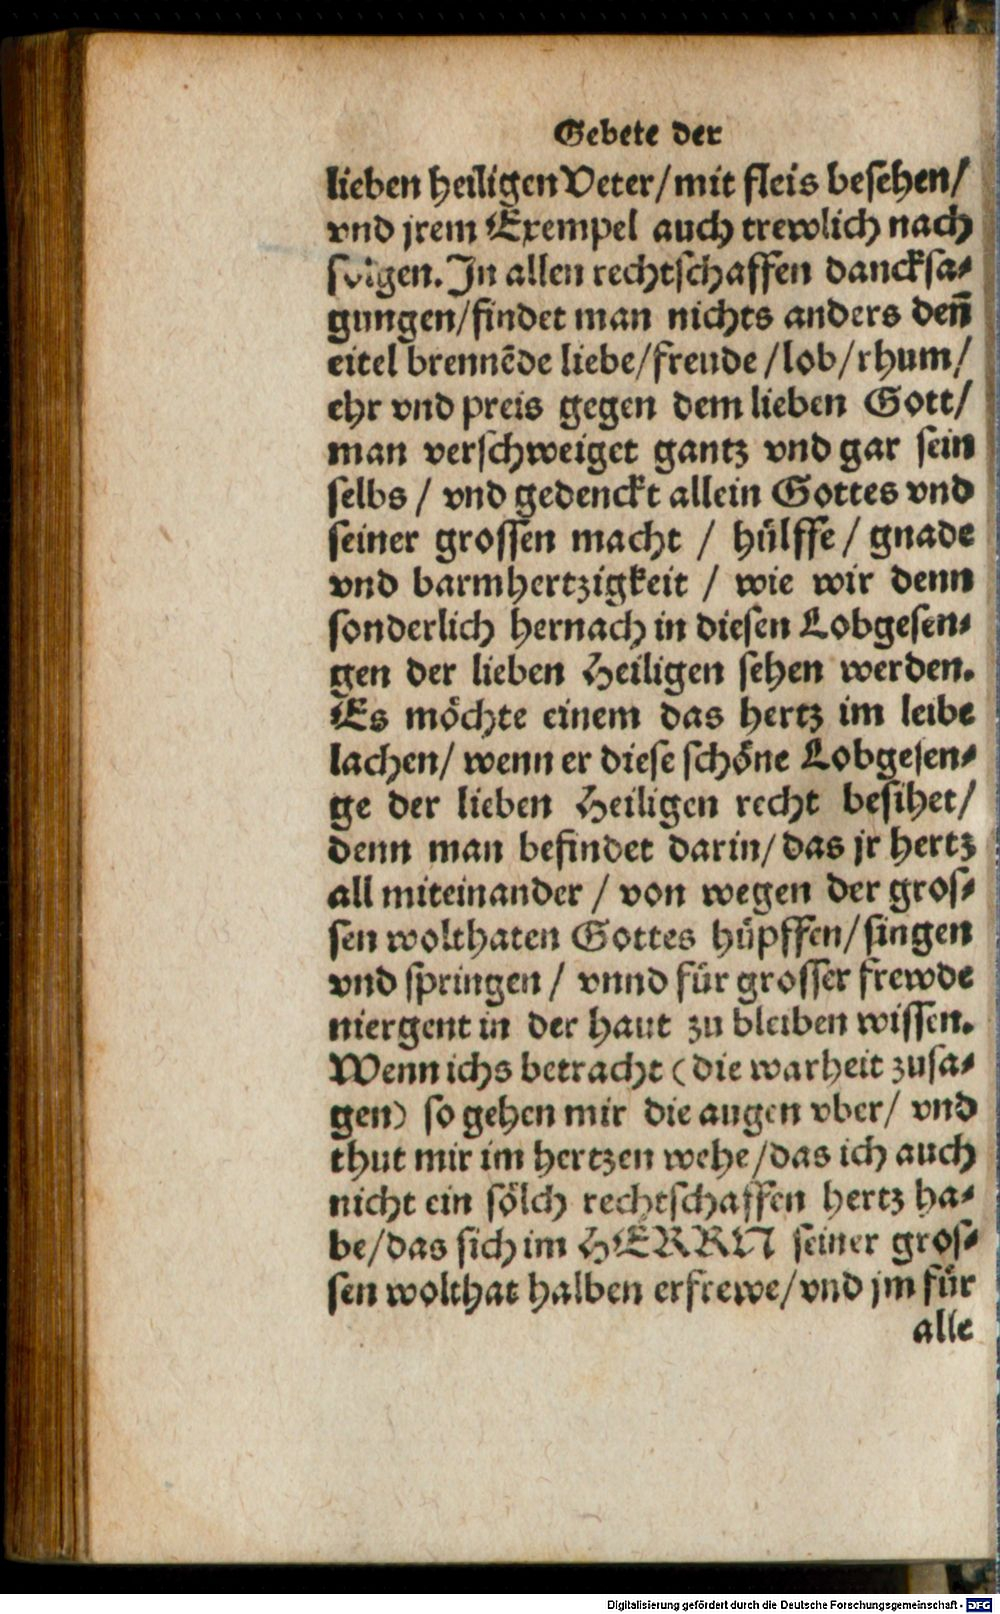 Gebete der
lieben heiligen Veter/ mit fleis besehen/
vnd jrem Exempel auch trewlich nach
folgen. In allen rechtschaffen dancksa-
gungen/ findet man nichts anders deñ
eitel brennẽde liebe/ freude / lob/ rhum/
ehr vnd preis gegen dem lieben Gott/
man verschweiget gantz vnd gar sein
selbs / vnd gedenckt allein Gottes vnd
seiner grossen macht / hülffe / gnade
vnd barmhertzigkeit / wie wir denn
sonderlich hernach in diesen Lobgesen-
gen der lieben Heiligen sehen werden.
Es möchte einem das hertz im leibe
lachen/ wenn er diese schöne Lobgesen-
ge der lieben Heiligen recht besihet/
denn man befindet darin/ das jr hertz
all miteinander / von wegen der gros-
sen wolthaten Gottes hüpffen/ singen
vnd springen / vnnd für grosser frewde
niergent in der haut zu bleiben wissen.
Wenn ichs betracht (die warheit zusa-
gen) so gehen mir die augen vber/ vnd
thut mir im hertzen wehe/ das ich auch
nicht ein sölch rechtschaffen hertz ha-
be/ das sich im HERRN seiner gros-
sen wolthat halben erfrewe/ vnd jm für
alle
Digitalisierung gefördert durch die Deutsche Forschungsgemeinschaft - DFG